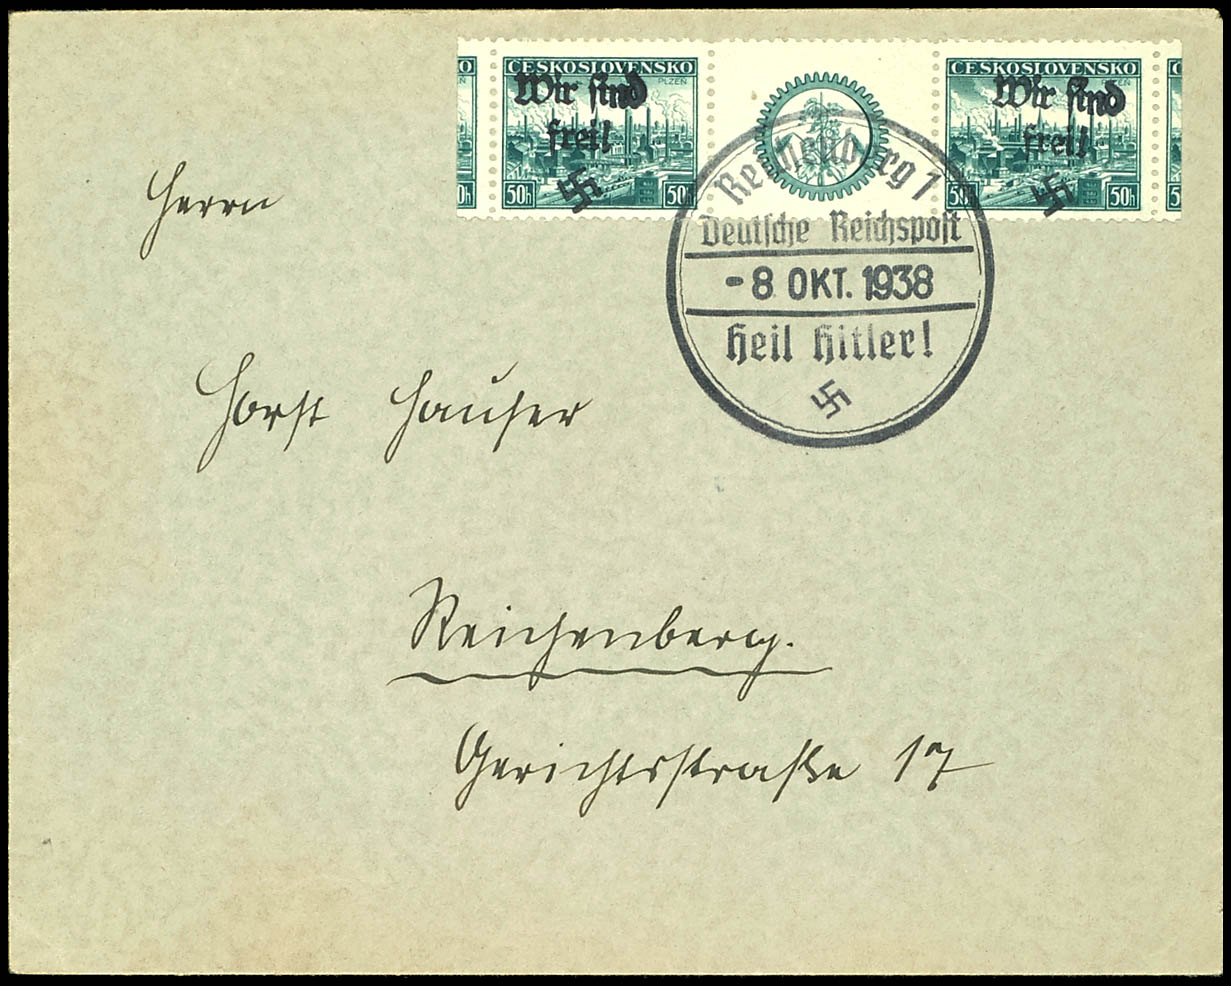 ČESKOSLOVENSKO
PLZEŇ
Wir sind
frei!
50h 50h
ČESKOSLOVENSKO
PLZEŇ
Wir sind
frei!
50h 50h
Reichenberg 1
Deutsche Reichspost
-8. OKT. 1938
Heil Hitler!
Herrn
Horst Hauser
Reichenberg.
Gerichtsstraße 17